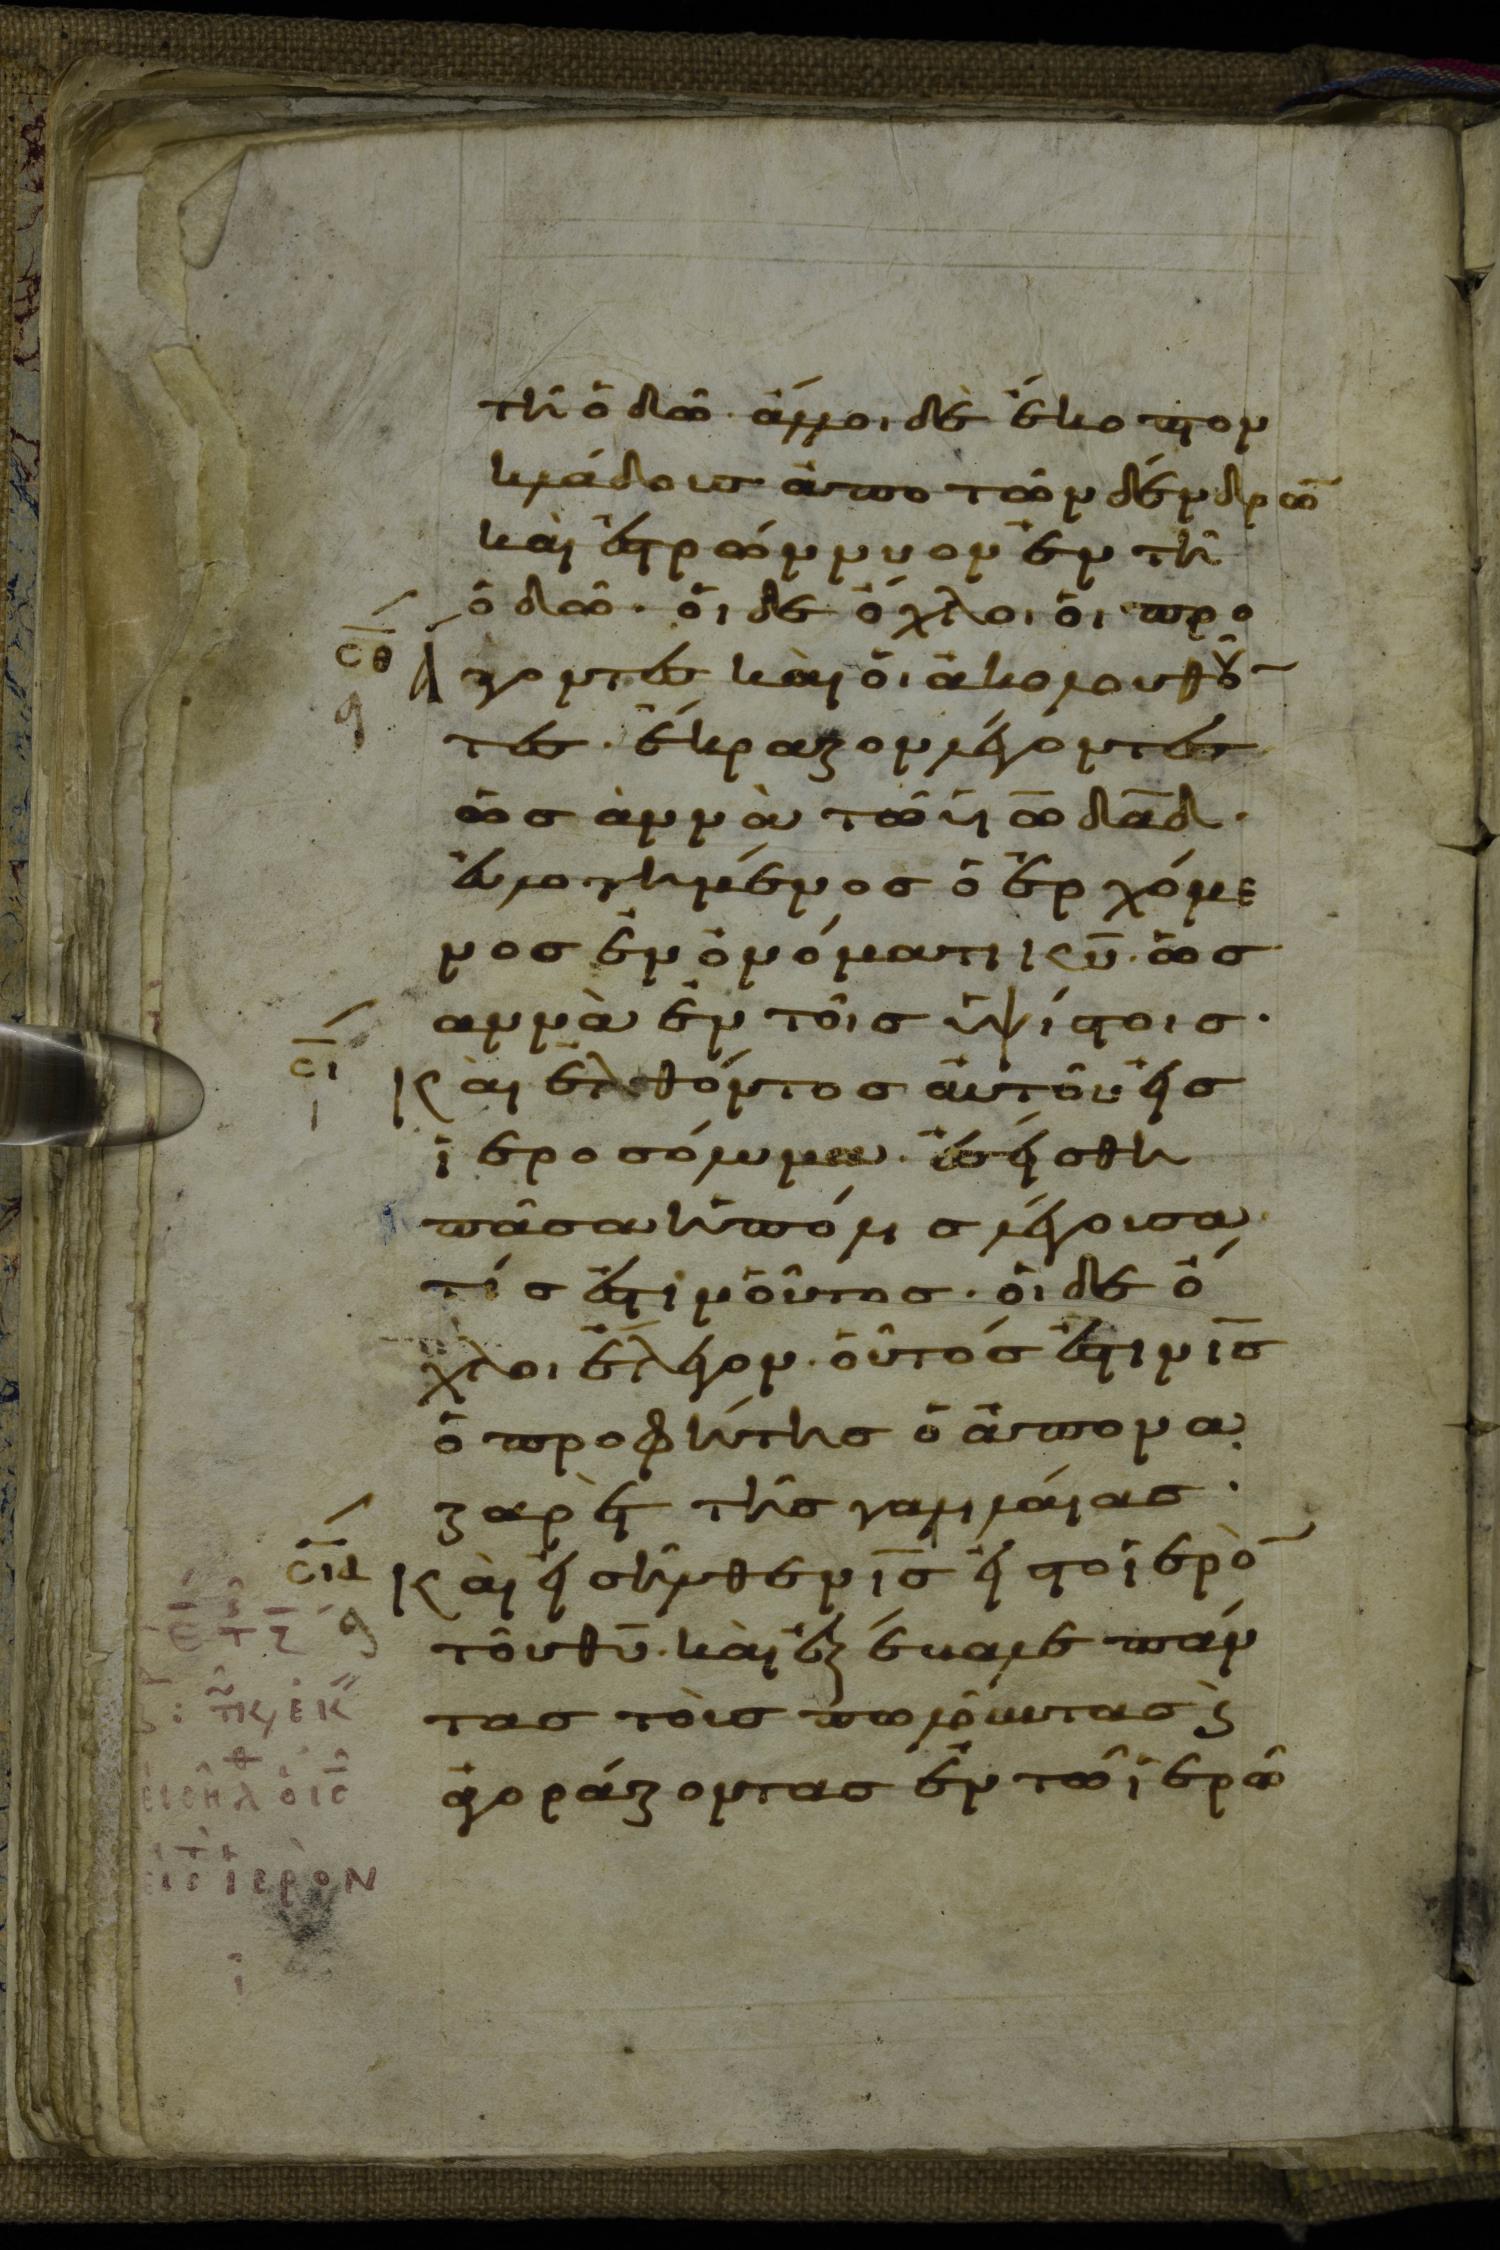 τῆ ὁδῶ· ἄλλοι δὲ ἔκοπτον
κλάδους ἀπο τῶν δένδρω̅
καὶ ἐστρώννυον ἐν τῆ
ὁδῶ· ὁι δε ὄχλοι ὁι προ
σ̅θ̅ ἄγοντες καὶ ὁι ἀκολουθοῦ̅
τες· ἔκραζον λέγοντες
ὡσἀννὰ τῶ υἱῶ δα̅δ·
ἐυλογημένος ὁ ἐρχόμε
νος ἐν ὀνόματι κ̅υ̅· ὡσ
αννὰ ἐν τοῖς ὑψίστοις·
σ̅ι̅ Και ἐλθόντος αὐτοῦ εἰς
ἱεροσόλυμα· ἐσείσθη
πᾶσα ἡ πόλις λέγουσα
τίς ἐστιν οὗτος· ὁι δε ὄ
χλοι ἔλεγον· οὗτός ἐστιν ι̅ς̅
ὁ προφήτης ὁ ἀπο να
ζαρὲτ τῆς γαλιλαίας·
σ̅ι̅α̅ Καὶ εἰσῆλθεν ι̅ς̅ εἰς το ἱερὸ̅
τοῦ θ̅υ̅· καὶ ἐξέβαλε πάν
τας τοὺς πωλοῦντας ϗ
ἀγοράζοντας ἐν τῶ ἱερῶ
ἱερὸν